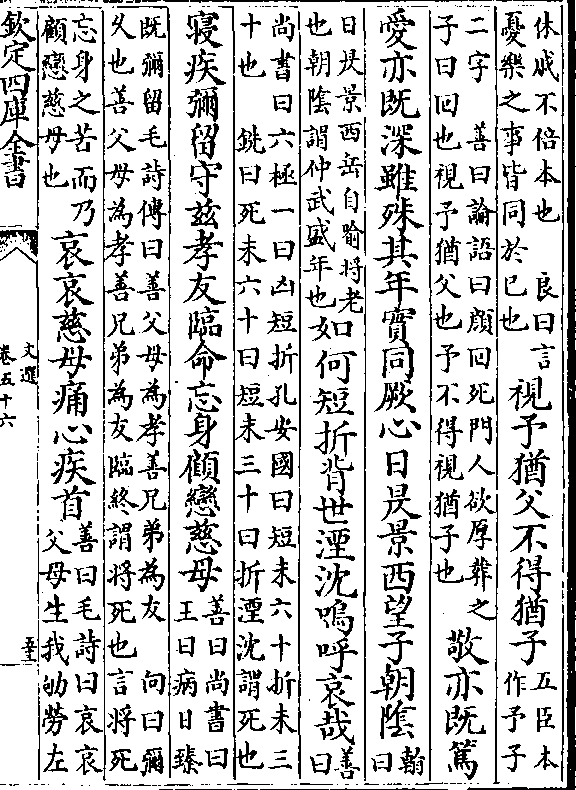 休戚不倍本也　良曰言
憂樂之事皆同於已也
視予猶父不得猶子
五臣本
作予子
二字　善曰論語曰顔回死門人欲厚葬之
子曰回也視予猶父也予不得視猶子也
敬亦既篤
愛亦既深雖殊其年實同厥心日昃景西望子朝陰
翰
曰
日昃景西岳自喻將老
也朝陰謂仲武盛年也
如何短折背世湮沈嗚呼哀哉
善
曰
尚書曰六極一曰凶短折孔安國曰短未六十折未三
十也　銑曰死未六十曰短未三十曰折湮沈謂死也
寝疾彌留守兹孝友臨命忘身顧戀慈母
善曰尚書曰
王曰病日臻
既彌留毛詩傳曰善父母為孝善兄弟為友　向曰彌
乆也善父母為孝善兄弟為友臨終謂將死也言將死
忘身之苦而乃
顧戀慈母也
哀哀慈母痛心疾首
善曰毛詩曰哀哀
父母生我劬勞左
欽定四庫全書
文選
卷五十六